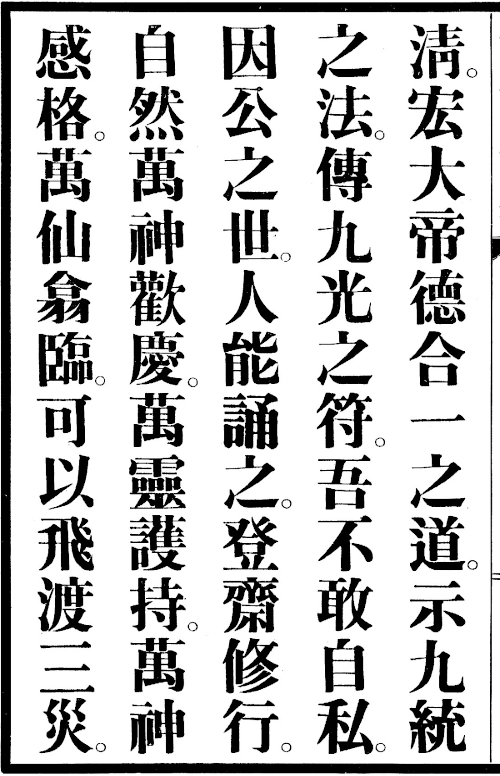 淸。宏大帝德合一之道。示九統
之法。傳九光之符。吾不敢自私。
因公之世。人能誦之。登齋修行。
自然萬神歡慶。萬靈護持。萬神
感格。萬仙翕臨。可以飛渡三災。